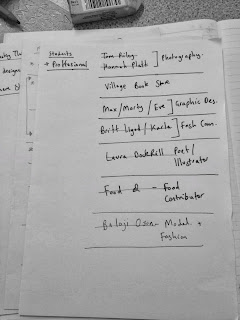 Students
→ Proffesional
Tom Riley
Hannah Platt ] Photography.
Village Book Store
Max/Marty/Eve ] Graphic Des.
Britt / Karla ] Fash Com.
Laura Poet/
Illustrator
Food & - Food
Contributor
Balaji - Model +
Fashion
designs